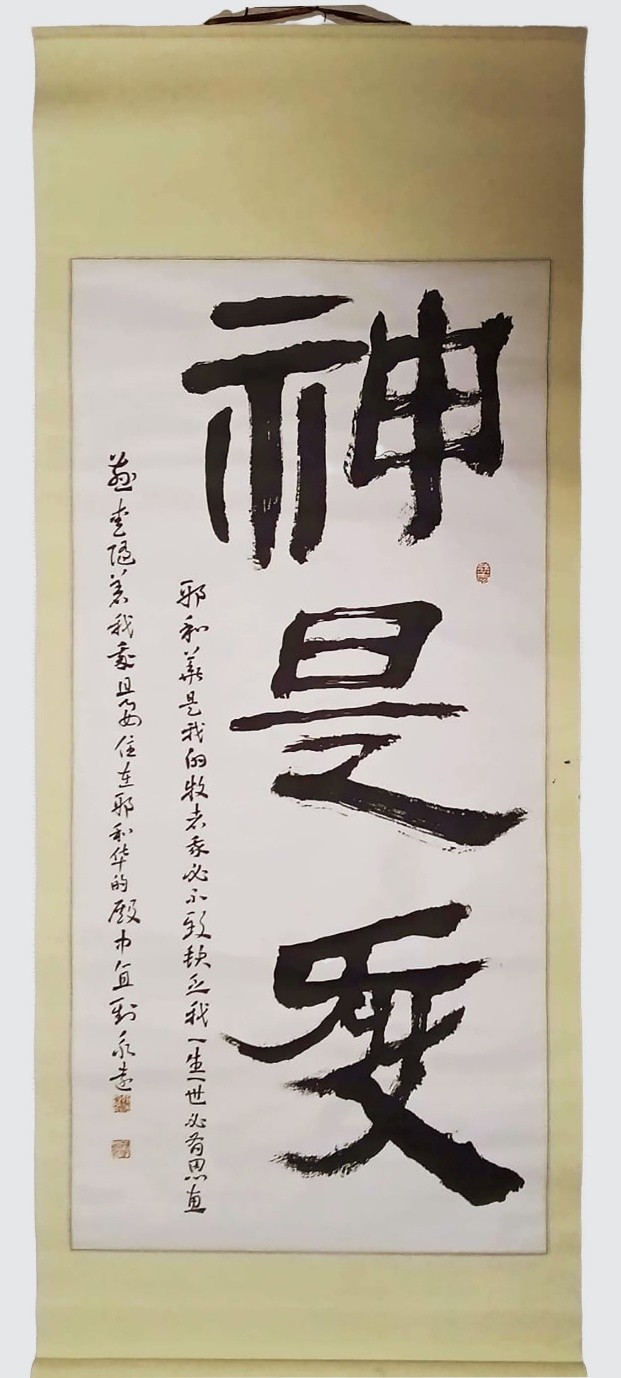 神是爱
耶和華是我的牧者我必不致缺乏我一生一世必有恩惠
慈爱随着我我且要住在耶和华的殿中直到永远